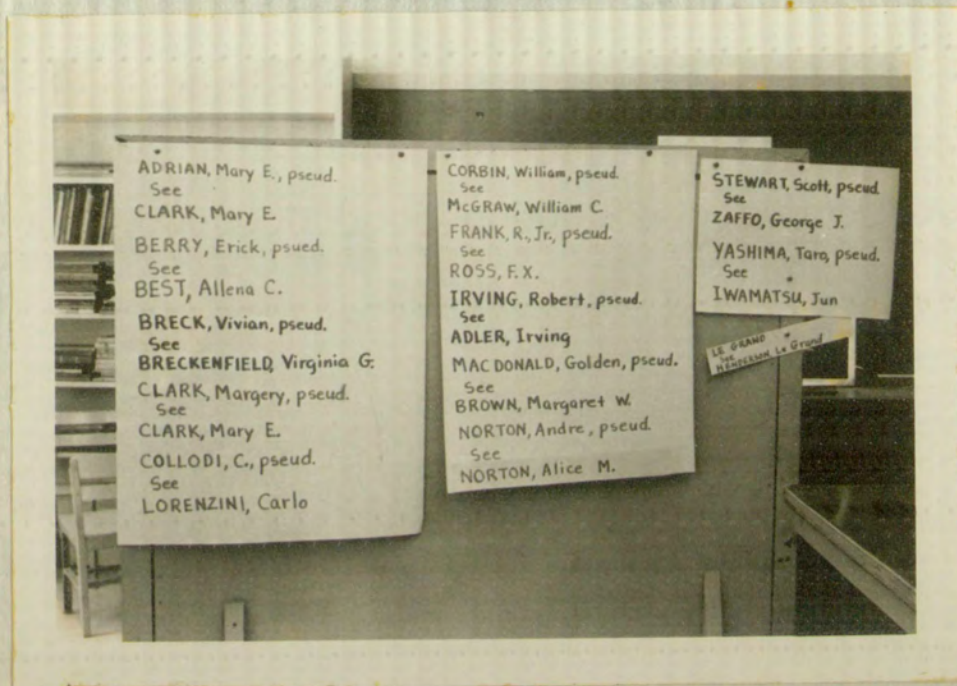 ADRIAN, Mary E., pseud.
See
CLARK, Mary E.
BERRY, Erick, psued.
See
BEST, Allena C.
BRECK, Vivian, pseud.
See
BRECKENFIELD, Virginia G.
CLARK, Margery, pseud.
See
CLARK, Mary E.
COLLODI, C., pseud.
See
LORENZINI, Carlo
CORBIN, William, pseud.
See
McGRAW, William C.
FRANK, R., Jr., pseud.
See
ROSS, F.X.
IRVING, Robert, pseud.
See
ADLER, Irving
MACDONALD, Golden, pseud.
See
BROWN, Margaret W.
NORTON, Andre, pseud.
See
NORTON, Alice M.
STEWART, Scott, pseud
See
ZAFFO, George J.
YASHIMA, Taro, pseud.
See
IWAMATSU, Jun
LE GRAND
See
HENDERSON, Le Grand